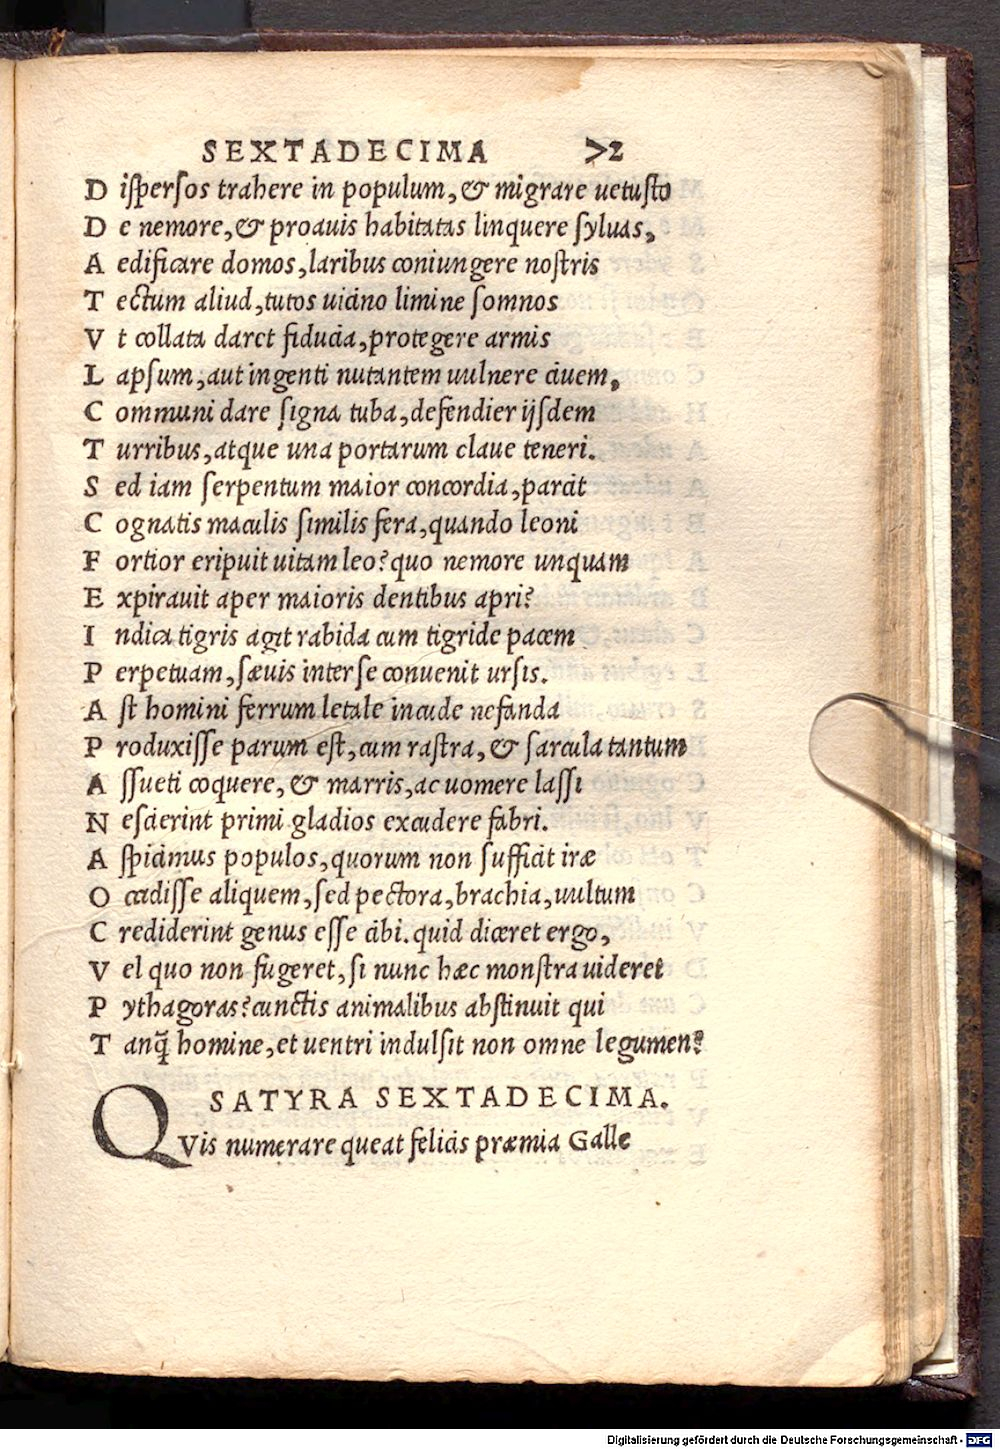 SEXTADECIMA 72
D iſperſos trahere in populum, & migrare uetuſto
D e nemore, & proauis habitatas linquere ſyluas,
A edificare domos, laribus coniungere noſtris
T ectum aliud, tutos uicino limine ſomnos
V t collata daret fiducia, protegere armis
L apſum, aut ingenti nutantem uulnere ciuem,
C ommuni dare ſigna tuba, defendier ijſdem
T urribus, atque una portarum claue teneri.
S ed iam ſerpentum maior concordia, parcit
C ognatis maculis ſimilis fera, quando leoni
F ortior eripuit uitam leo? quo nemore unquam
E xpirauit aper maioris dentibus apri?
I ndica tigris agit rabida cum tigride pacem
P erpetuam, ſæuis inter ſe conuenit urſis.
A ſt homini ferrum letale incude nefanda
P roduxiſſe parum eſt, cum raſtra, & ſarcula tantum
A ſſueti coquere, & marris, ac uomere laſſi
N eſcierint primi gladios excudere fabri.
A ſpicimus populos, quorum non ſufficit iræ
O ccidiſſe aliquem, ſed pectora, brachia, uultum
C rediderint genus eſſe cibi. quid diceret ergo,
V el quo non fugeret, ſi nunc hæc monſtra uideret
P ythagoras? cunctis animalibus abſtinuit qui
T anq̃ homine, et uentri indulſit non omne legumen?
SATYRA SEXTADECIMA.
QVis numerare queat felicis præmia Galle
Digitalisierung gefördert durch die Deutsche Forschungsgemeinschaft - DFG